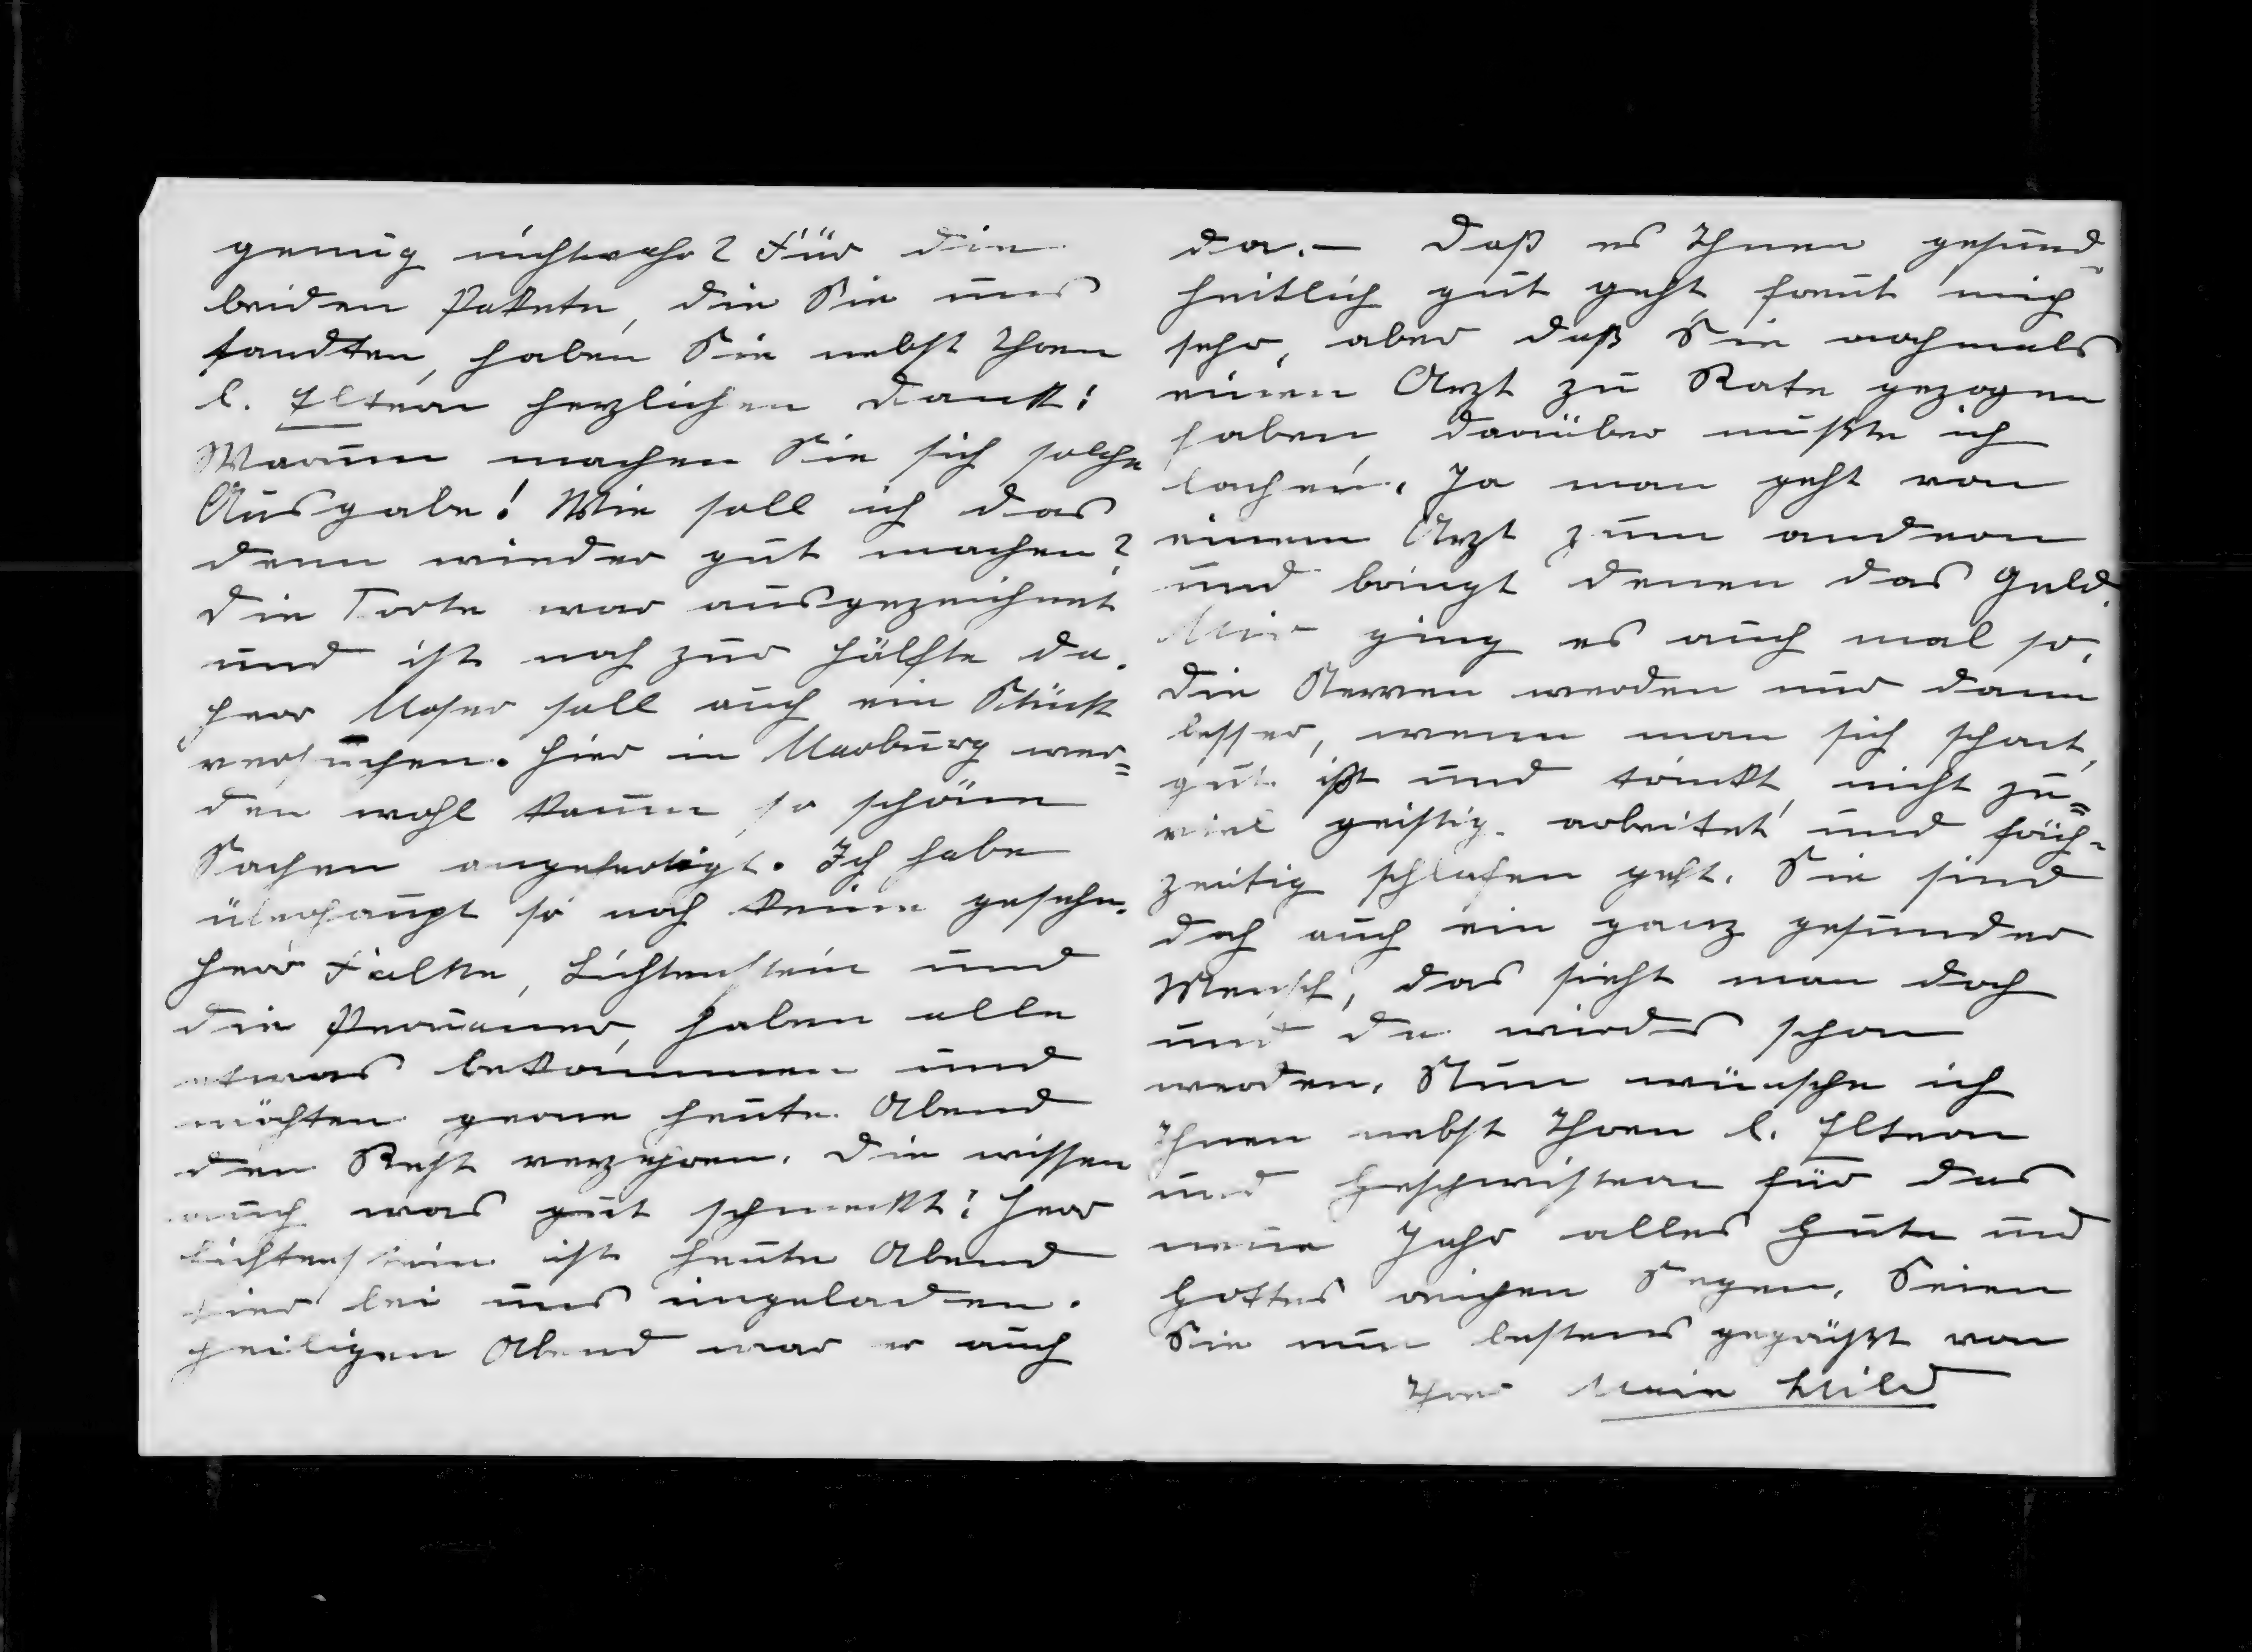 genug nichtwahr? Für die
beiden Pakete, die Sie uns
sandten, haben Sie nebst Ihren
l. Eltern herzlichen Dank!
Warum machen Sie sich solche
Ausgabe! Wie soll ich das
denn wieder gut machen?
Die Torte war ausgezeichnet
und ist noch zur Hälfte da.
Herr Moser soll auch ein Stück
versuchen. Hier in Marburg wer=
den wohl kaum so schöne
Sachen angefertigt. Ich habe
überhaupt so noch keine gesehn.
Herr Falke, Lichtenstein und
die Peruaner, haben alle
etwas bekommen und
möchten gerne heute Abend
den Rest verzehren. Die wissen
auch was gut schmeckt! Herr
Lichtenstein ist heute Abend
hier bei uns eingeladen.
Heiligen Abend war er auch
da. – Daß es Ihnen gesund-
heitlich gut geht, freut mich
sehr, aber daß Sie nochmals
einen Arzt zu Rate gezogen
haben, darüber mußte ich
lachen. Ja man geht von
einem Arzt zum andern
und bringt denen das Geld.
Mir ging es auch mal so,
die Nerven werden nur dann
besser, wenn man sich schont,
gut ißt und trinkt, nicht zu=
viel geistig arbeitet und früh-
zeitig schlafen geht. Sie sind
doch auch ein ganz gesunder
Mensch, das sieht man doch
und da wirds schon
werden. Nun wünsche ich
Ihnen nebst Ihren l. Eltern
und Geschwistern für das
neue Jahr alles Gute und
Gottes reichen Segen. Seien
Sie nun bestens gegrüßt von